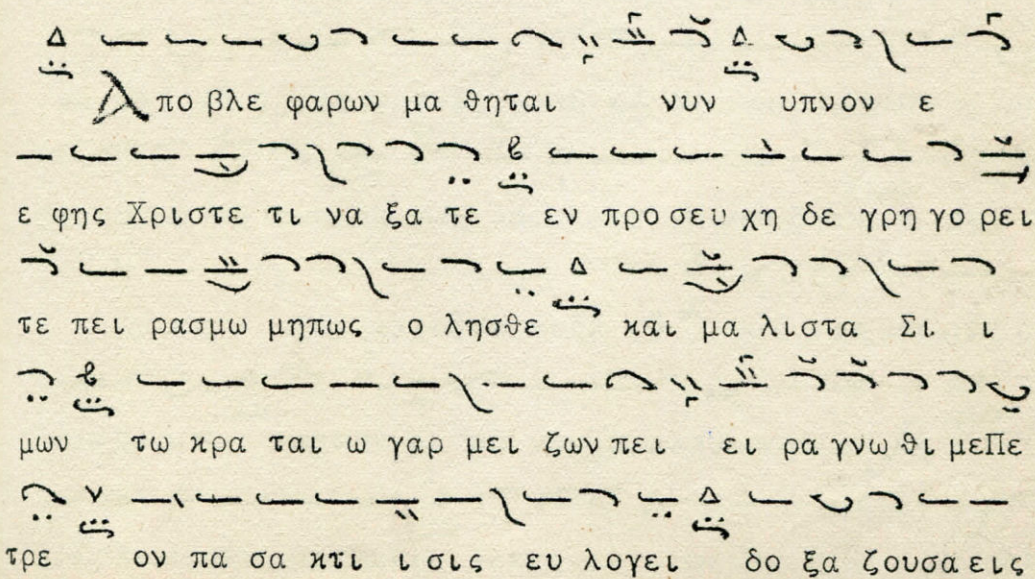 Απο βλε φαρων μα θηται νυν υπνον ε
ε φης Χριστε τι να ξα τε εν προσευ χη δε γρη γο ρει
τε πει ρασμω μηπως ο λησθε και μα λιστα Σι ι
μων τω κρα ται ω γαρ μει ζων πει ει ρα γνω θι μεΠε
τρε ον πα σα κτι ι σις ευ λογει δο ξα ζουσα εις